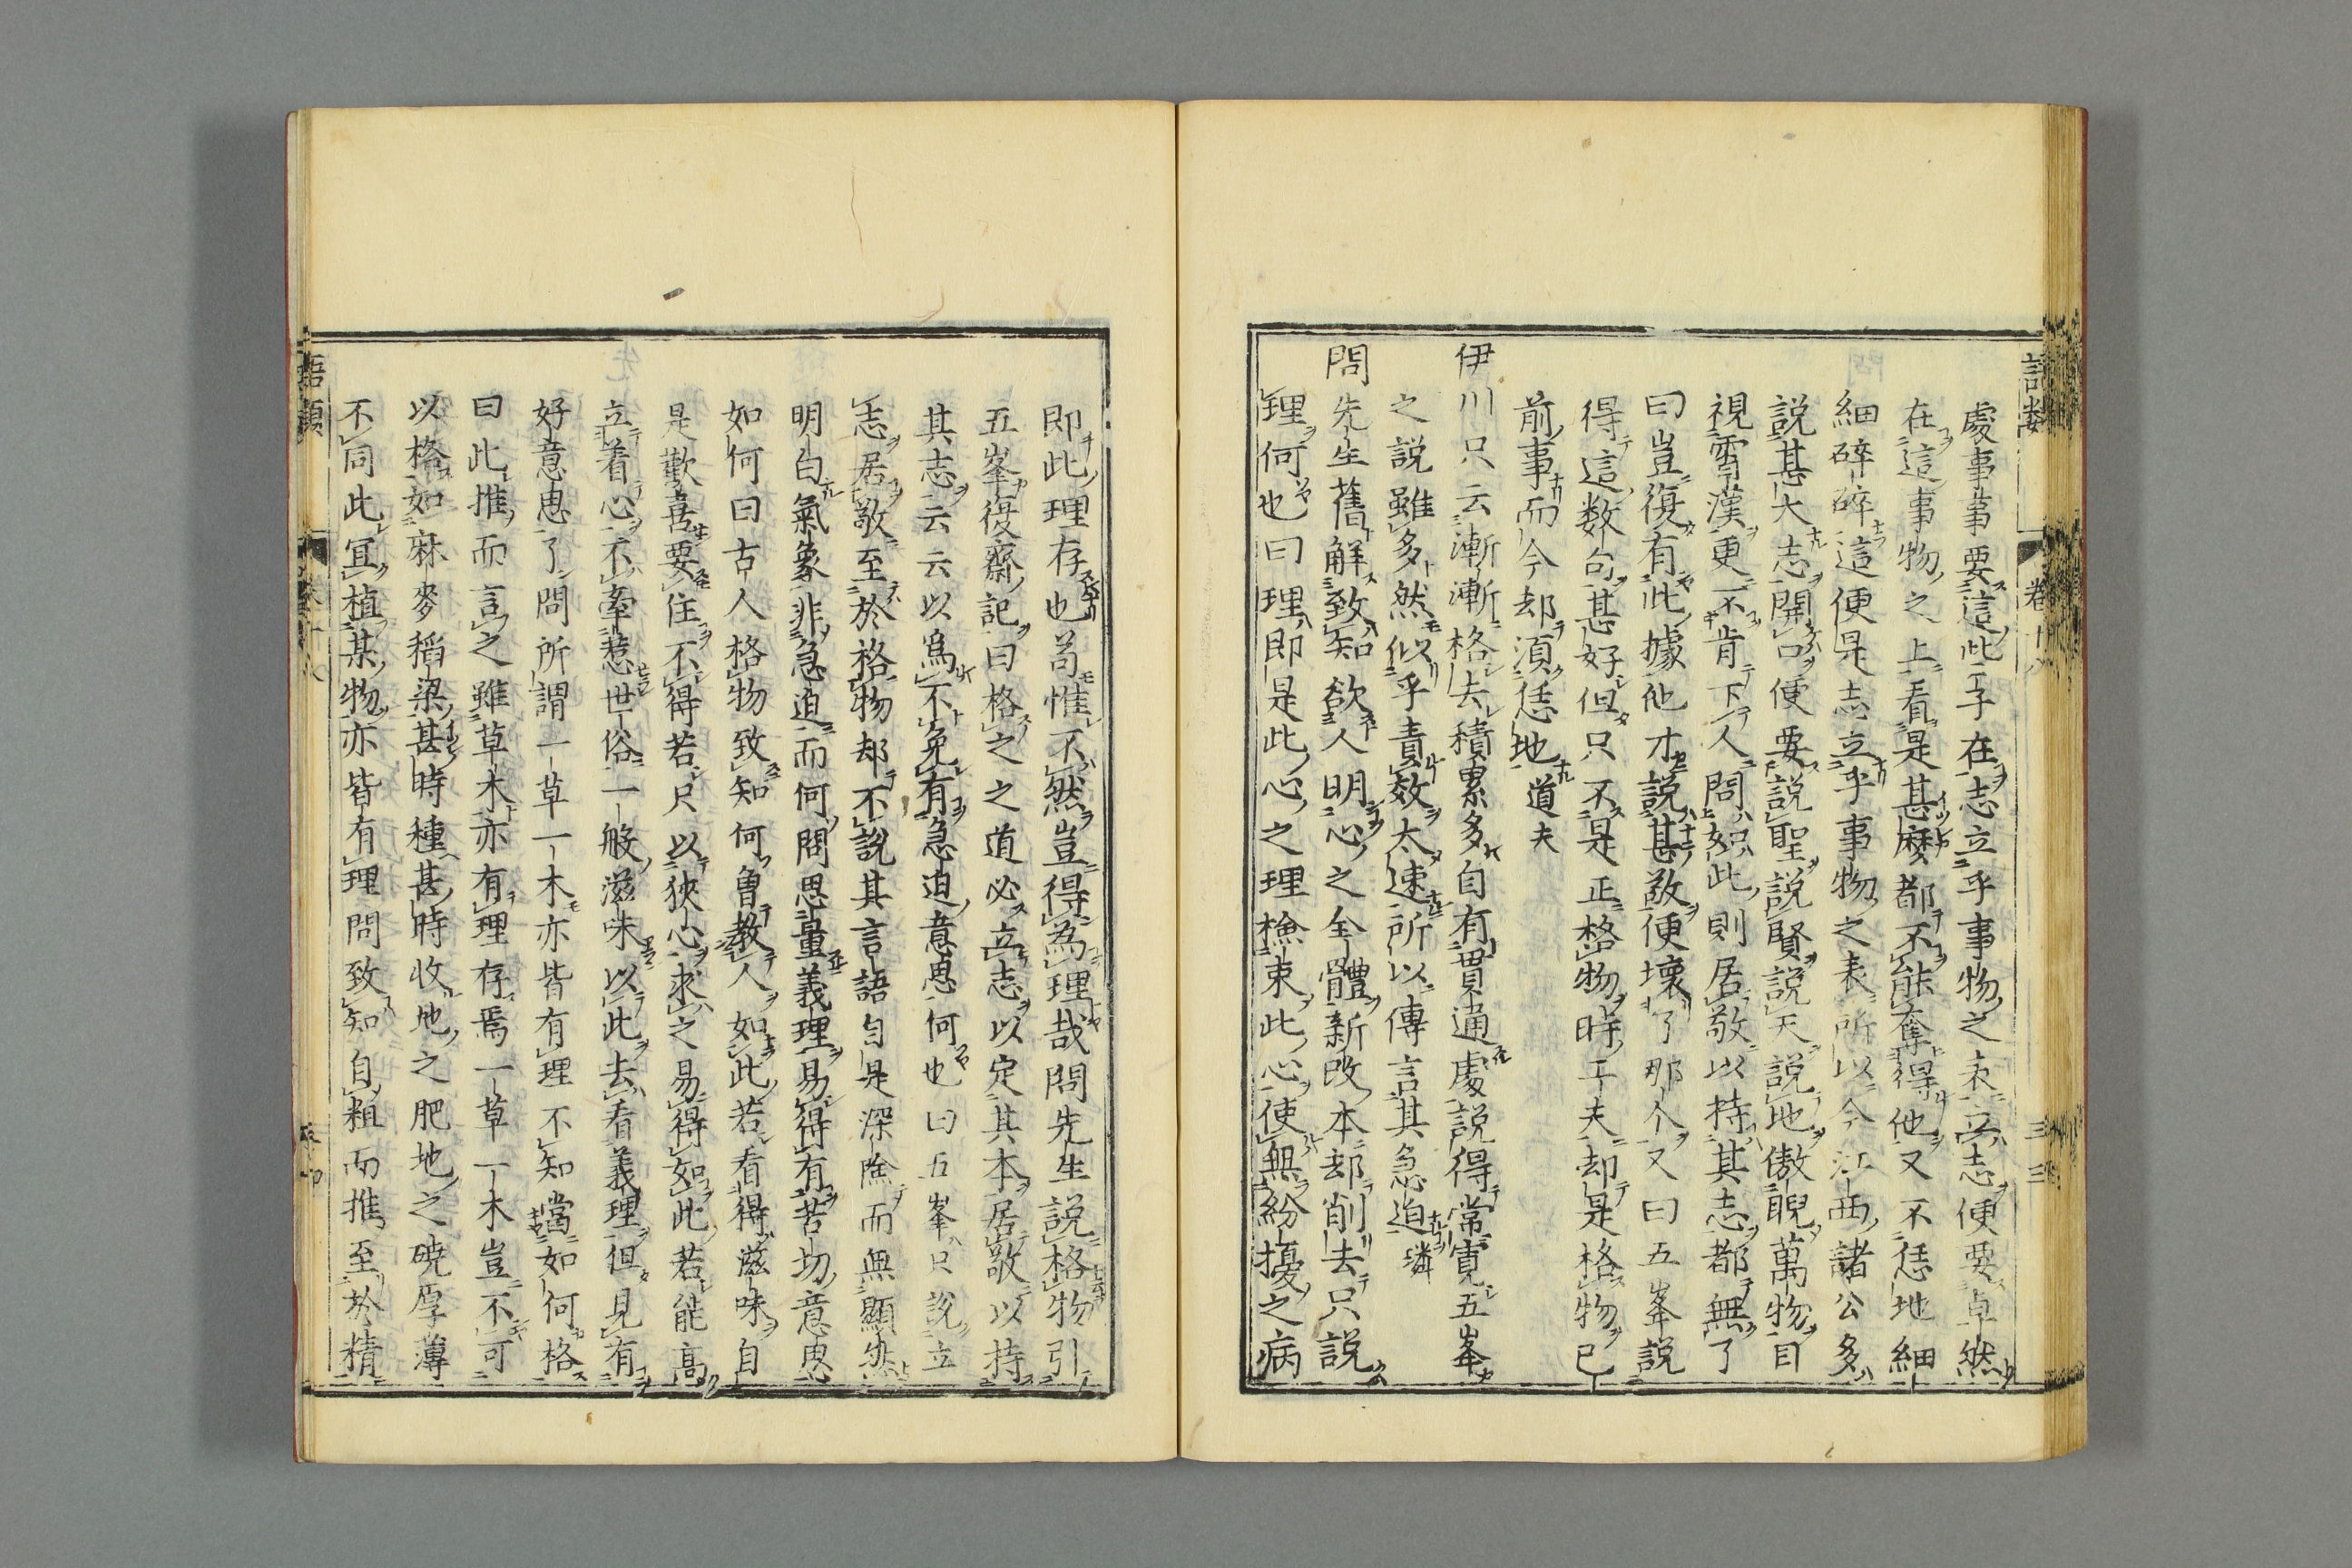 語類
卷十八
三三
處事事要這些子在志立乎事物之表立志便要卓然
在這事物之上看是甚麼都不能奪得他又不恁地細
細碎碎這便是志立乎事物之表所以今江西諸公多
説甚大志開口便要説聖説賢説天説地傲睨萬物目
視霄漢更不肯下人問如此則居敬以持其志都無了
曰豈復有此據他才説甚敬便壞了那个又曰五峯説
得這数句甚好但只不是正格物時工夫却是格物已
前事而今却須恁地道夫
伊川只云漸漸格去積累多自有貫通處説得常寛五峯
之説雖多然似乎責效太速所以傳言其急迫璘
問先生舊解致知欲人明心之全體新改本却削去只説
理何也曰理即是此心之理檢束此心使無紛擾之病
即此理存也苟惟不然豈得為理哉問先生説格物引
五峯復齋記曰格之之道必立志以定其本居敬以持
其志云云以為不免有急迫意思何也曰五峯只説立
志居敬至於格物却不説其言語自是深險而無顯然
明白氣象非急迫而何問思量義理易得有苦切意思
如何曰古人格物致知何曽教人如此若看得滋味自
是歡喜要住不得若只以狹心求之易得如此若能高
立着心不牽惹世俗一般滋味以此去看義理但見有
好意思了問所謂一草一木亦皆有理不知當如何格
曰此推而言之雖草木亦有理存焉一草一木豈不可
以格如麻麥稻粱甚時種甚時收地之肥地之磽厚薄
不同此宜植某物亦皆有理問致知自粗而推至於精
語類